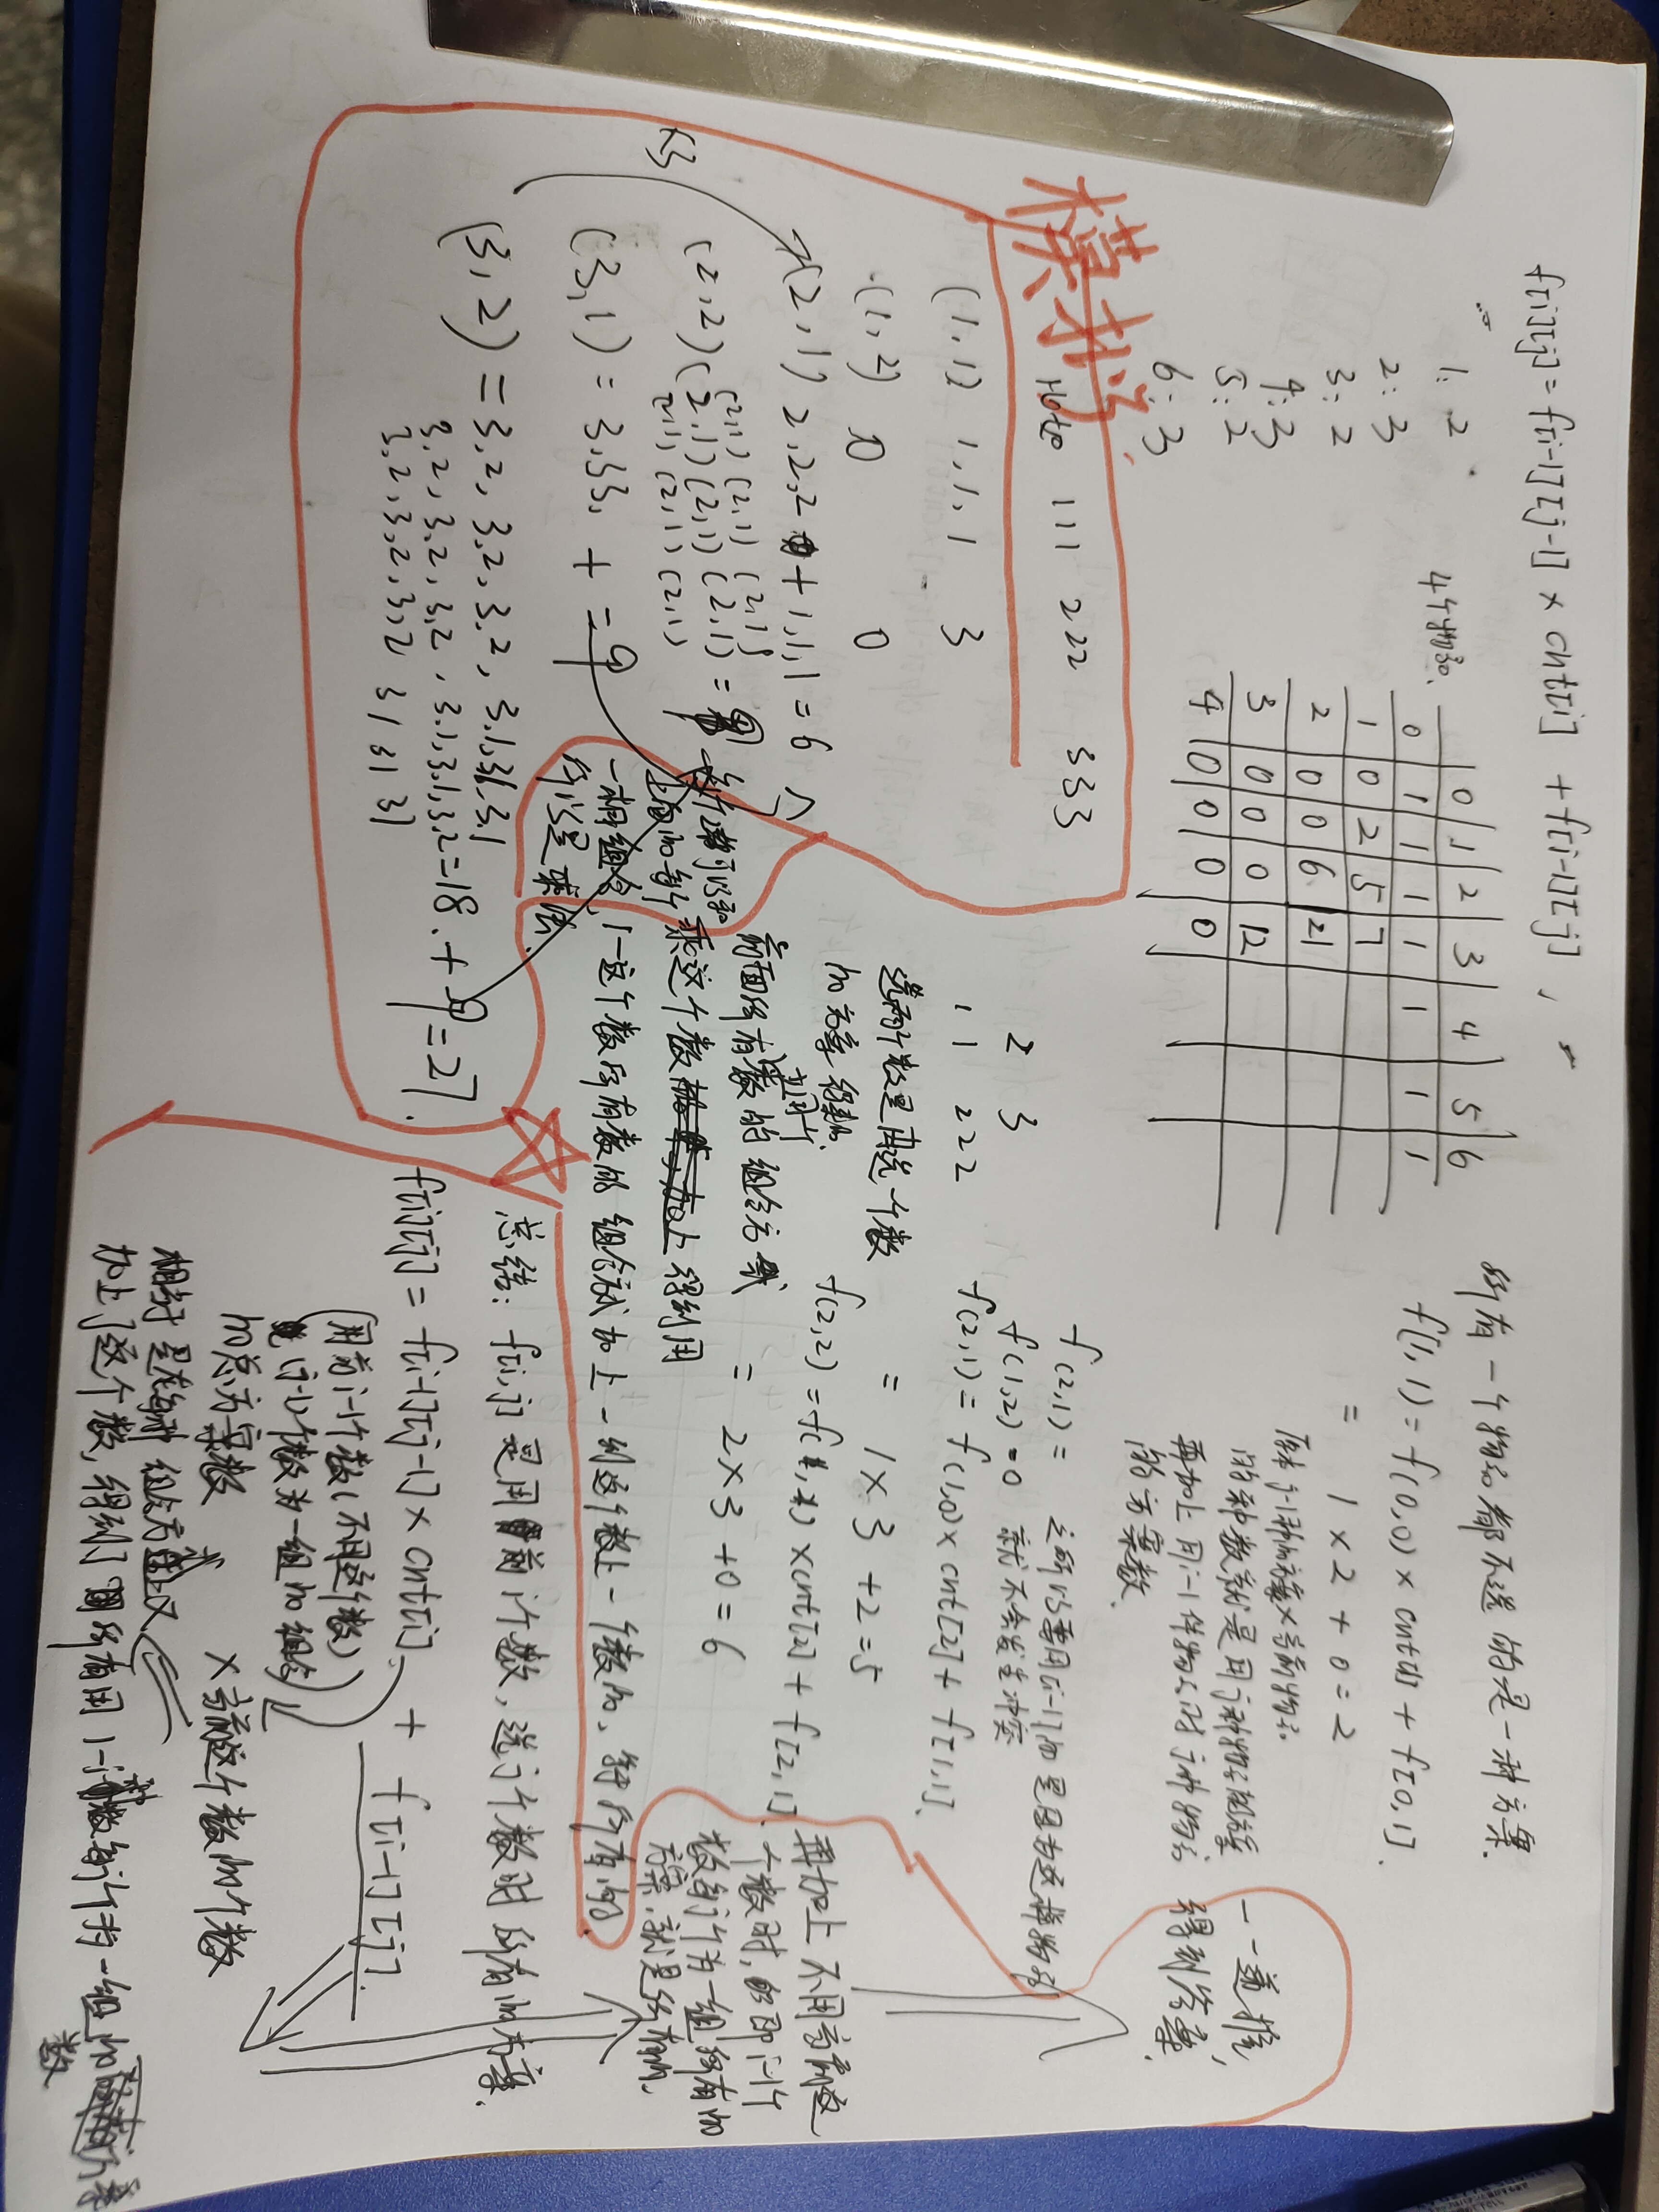 f[i][j] = f[i-1][j-1] × cnt[i] + f[i-1][j],
1: 2
2: 3
3: 2
4: 3
5: 2
6: 3
4个物品、
0 1 2 3 4 5 6
0 1 1 1 1 1 1 1
1 0 2 5 7
2 0 0 6 21
3 0 0 0 12
4 0 0 0 0
模拟
111 222 333
(1,1) 1,1,1 3
(1,2) 0 0
×3
(2,1) 2,2,2 + 1,1,1 = 6个
(2,2) (2,1) (2,1) (2,1)
(2,1) (2,1) (2,1) =
(2,1) (2,1) (2,1)
(3,1) = 3,3,3, + = 9
(3,2) = 3,2, 3,2, 3,2, 3,1,3,1,3,1
3,2, 3,2, 3,2, 3,1,3,1,3,2=18 + 9=27.
3,2,3,2,3,2 31 31 31
上面的每个
一相组合,
所以是乘法.
2 3
1 1 222
选两个数是由选一个数
的方案得期
前面所有数的组合方式
乘这个数 得到用
1-这个数所有数的组合试加上一到这个数上一个数的,等所有的
所有一个物品都不选的是一种方案.
f(1,1) = f(0,0) × cnt[1] + f[0,1].
= 1×2+0=2
原来j-1种的方案×当前物品
的种数就是用j种物品的方案
再加上用i-1件物品时j种物品
的方案数.
f(2,1) = 之所以要用[i-1]的是因为这样物品
f(1,2)=0 就不会发生冲突
f(2,1) = f(1,0)×cnt[2] + f[1,1].
= 1×3 +2=5
×cnt[2] + f[2,1]
= 2×3+0=6
再加上不用当前这
个数时,的即i-1个
数每j个为一组所有的
方案,就是所有的.
一一递推,
得到答案.
总结: f[i,j] 是用前i个数,选j个数时所有的方案.
f[i][j] = f[i-1][j-1] × cnt[i] + f[i-1][j].
(用前i-1个数(不用这个数)
选(j-1)个数为一组的组的)
的总方案数 × 当前这个数的个数
相当于是在每种组合方式上又
加上了这个数,得到了所有用1-i个数每j个为一组的方案
数